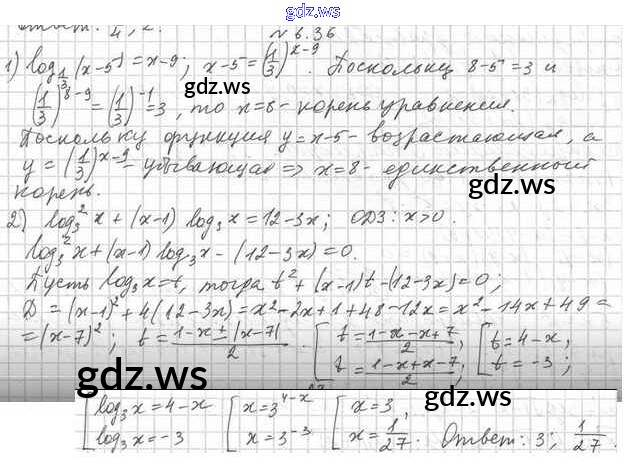 gdz.ws
Ответ: 4, 2.
№ 6.36
1) log_{1/3}(x-5) = x-9; x-5 = (1/3)^{x-9}. Поскольку 8-5=3 и
(1/3)^{8-9} = (1/3)^{-1} = 3, то x=8 - корень уравнения.
Поскольку функция y=x-5 - возрастающая, а
y = (1/3)^{x-9} - убывающая => x=8 - единственный
корень.
2) log_3^2 x + (x-1) log_3 x = 12-3x; ОДЗ: x>0.
log_3^2 x + (x-1) log_3 x - (12-3x) = 0.
Пусть log_3 x = t, тогда t^2 + (x-1)t - (12-3x) = 0;
D = (x-1)^2 + 4(12-3x) = x^2 - 2x + 1 + 48 - 12x = x^2 - 14x + 49 =
= (x-7)^2; t = (1-x ± |x-7|)/2. [t = (1-x-x+7)/2, t = (1-x+x-7)/2; [t = 4-x, t = -3;
[log_3 x = 4-x, log_3 x = -3 [x = 3^{4-x}, x = 3^{-3} [x = 3, x = 1/27. Ответ: 3; 1/27.
gdz.ws
gdz.ws
gdz.ws
gdz.ws
gdz.ws
gdz.ws
gdz.ws